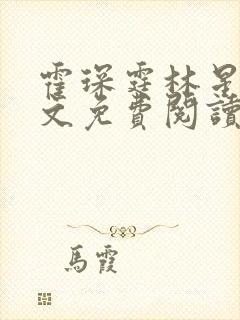 霍琛霆林星
文免費閱讀
馬霞